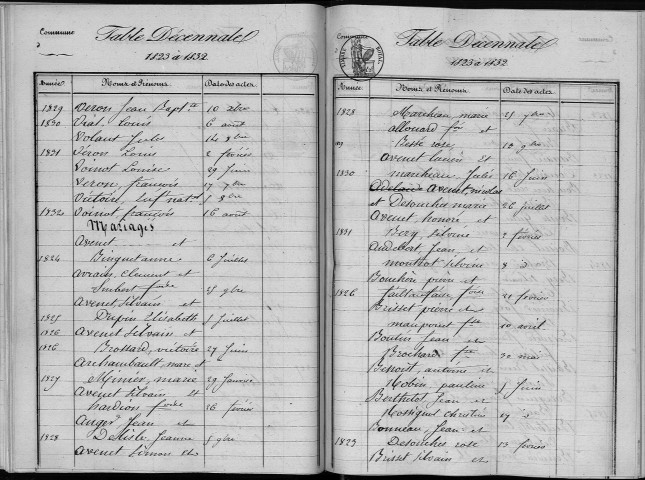 Commune
Table Décennale
1823 à 1832
Année Noms et Prénoms Date des actes
1829 Veron Jean Bapt.te 10 xbre
1830 Vial Louis 6 aout
Volant Jules 14 9bre
1831 Véron Louis 2 février
Voinot Louise 29 Juin
Veron françois 17 7bre
Victoire, enf.t nat.l 1 8bre
1832 Voinot françois 16 aout
Mariages
Avenet et
1824 Binquet anne 6 Juillet
Avrain, Clement et
Imbert 25 9bre
Avenet Silvain et
1825 Dupin Elisabeth 5 Juillet
1826 Avenet Silvain et
1826 Brossard, victoire 27 Juin
Archambault, marc et
1827 Minier, marie 29 Janvier
Avenet Silvain et
hardion 26 février
Auger Jean et
1828 Delisle, Jeanne 5 9bre
Avenet Simon et
Commune
Table Décennale
1823 à 1832
Année Noms et Prénoms Date des actes
1828 Marchau marie 25 9bre
allouard f.ois et
29 Bessé rose 10 9bre
avenet et
1830 marchau Julie 16 Juin
Avenet, nicolas
et Desouches marie 26 Juillet
Avenet honoré et
1831 Bery Silvine 2 février
Audebert, Jean et
montrot Silvine 8 d
Bouchén pierre et
1826 21 février
Brisset pierre et
maupoint 10 avril
Boutin Jean et
Brochard 30 mai
Benoit, antoine et
Mobin pauline 5 Juin
Berthelot, Jean et
Rossignol christine 27 d
Bonneau, Jean et
1829 Desouches rose 13 février
Brisset Silvain et